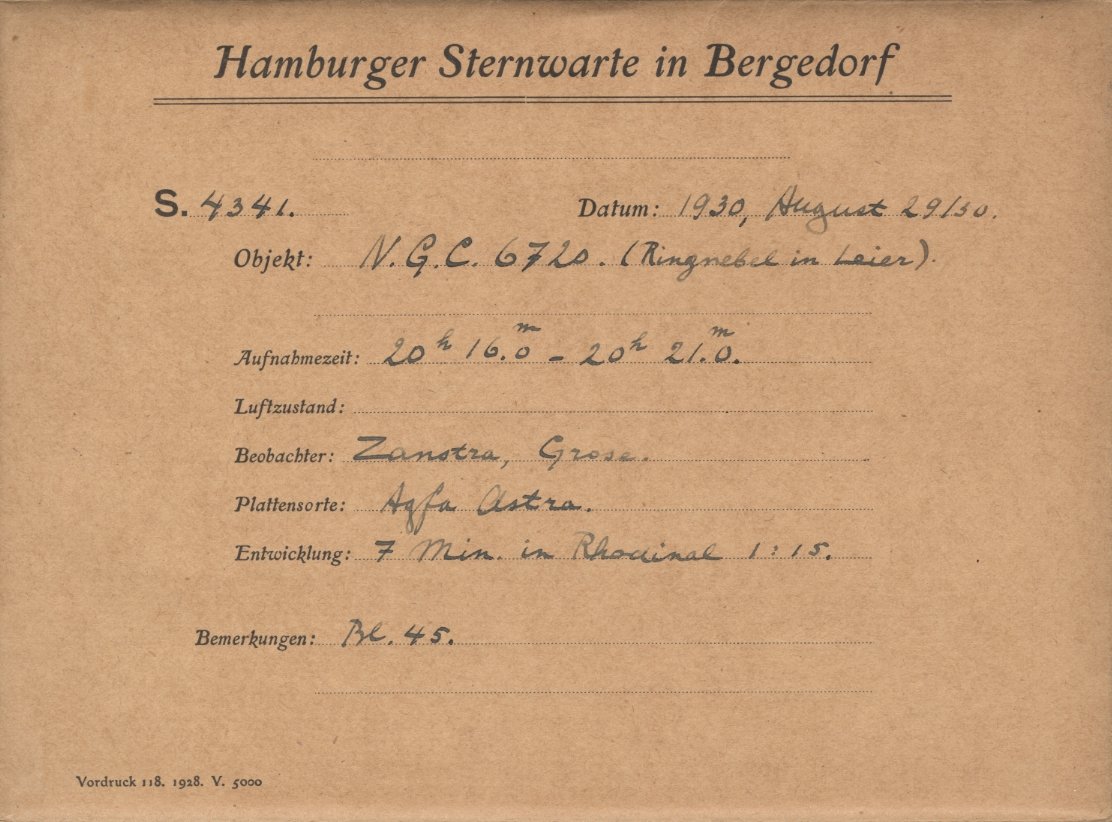 Hamburger Sternwarte in Bergedorf
S. 4341. Datum: 1930, August 29/30.
Objekt: N.G.C. 6720. (Ringnebel in Leier).
Aufnahmezeit: 20h 16.0m – 20h 21.0m.
Luftzustand:
Beobachter: Zanstra, Grose.
Plattensorte: Agfa Astra.
Entwicklung: 7 Min. in Rhodinal 1:15.
Bemerkungen: Bl. 45.
Vordruck 118. 1928. V. 5000